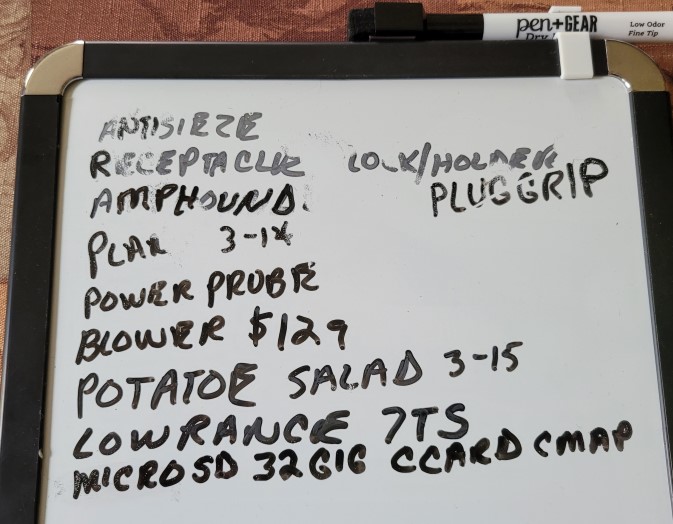 pen+GEAR
Dry
Low Odor
Fine Tip
ANTISIEZE
RECEPTACLE LOCK/HOLDER
AMPHOUND. PLUG GRIP
PLAX 3-14
POWER PROBE
BLOWER $129
POTATOE SALAD 3-15
LOWRANCE 7TS
MICROSD 32GIG CCARD CMAP